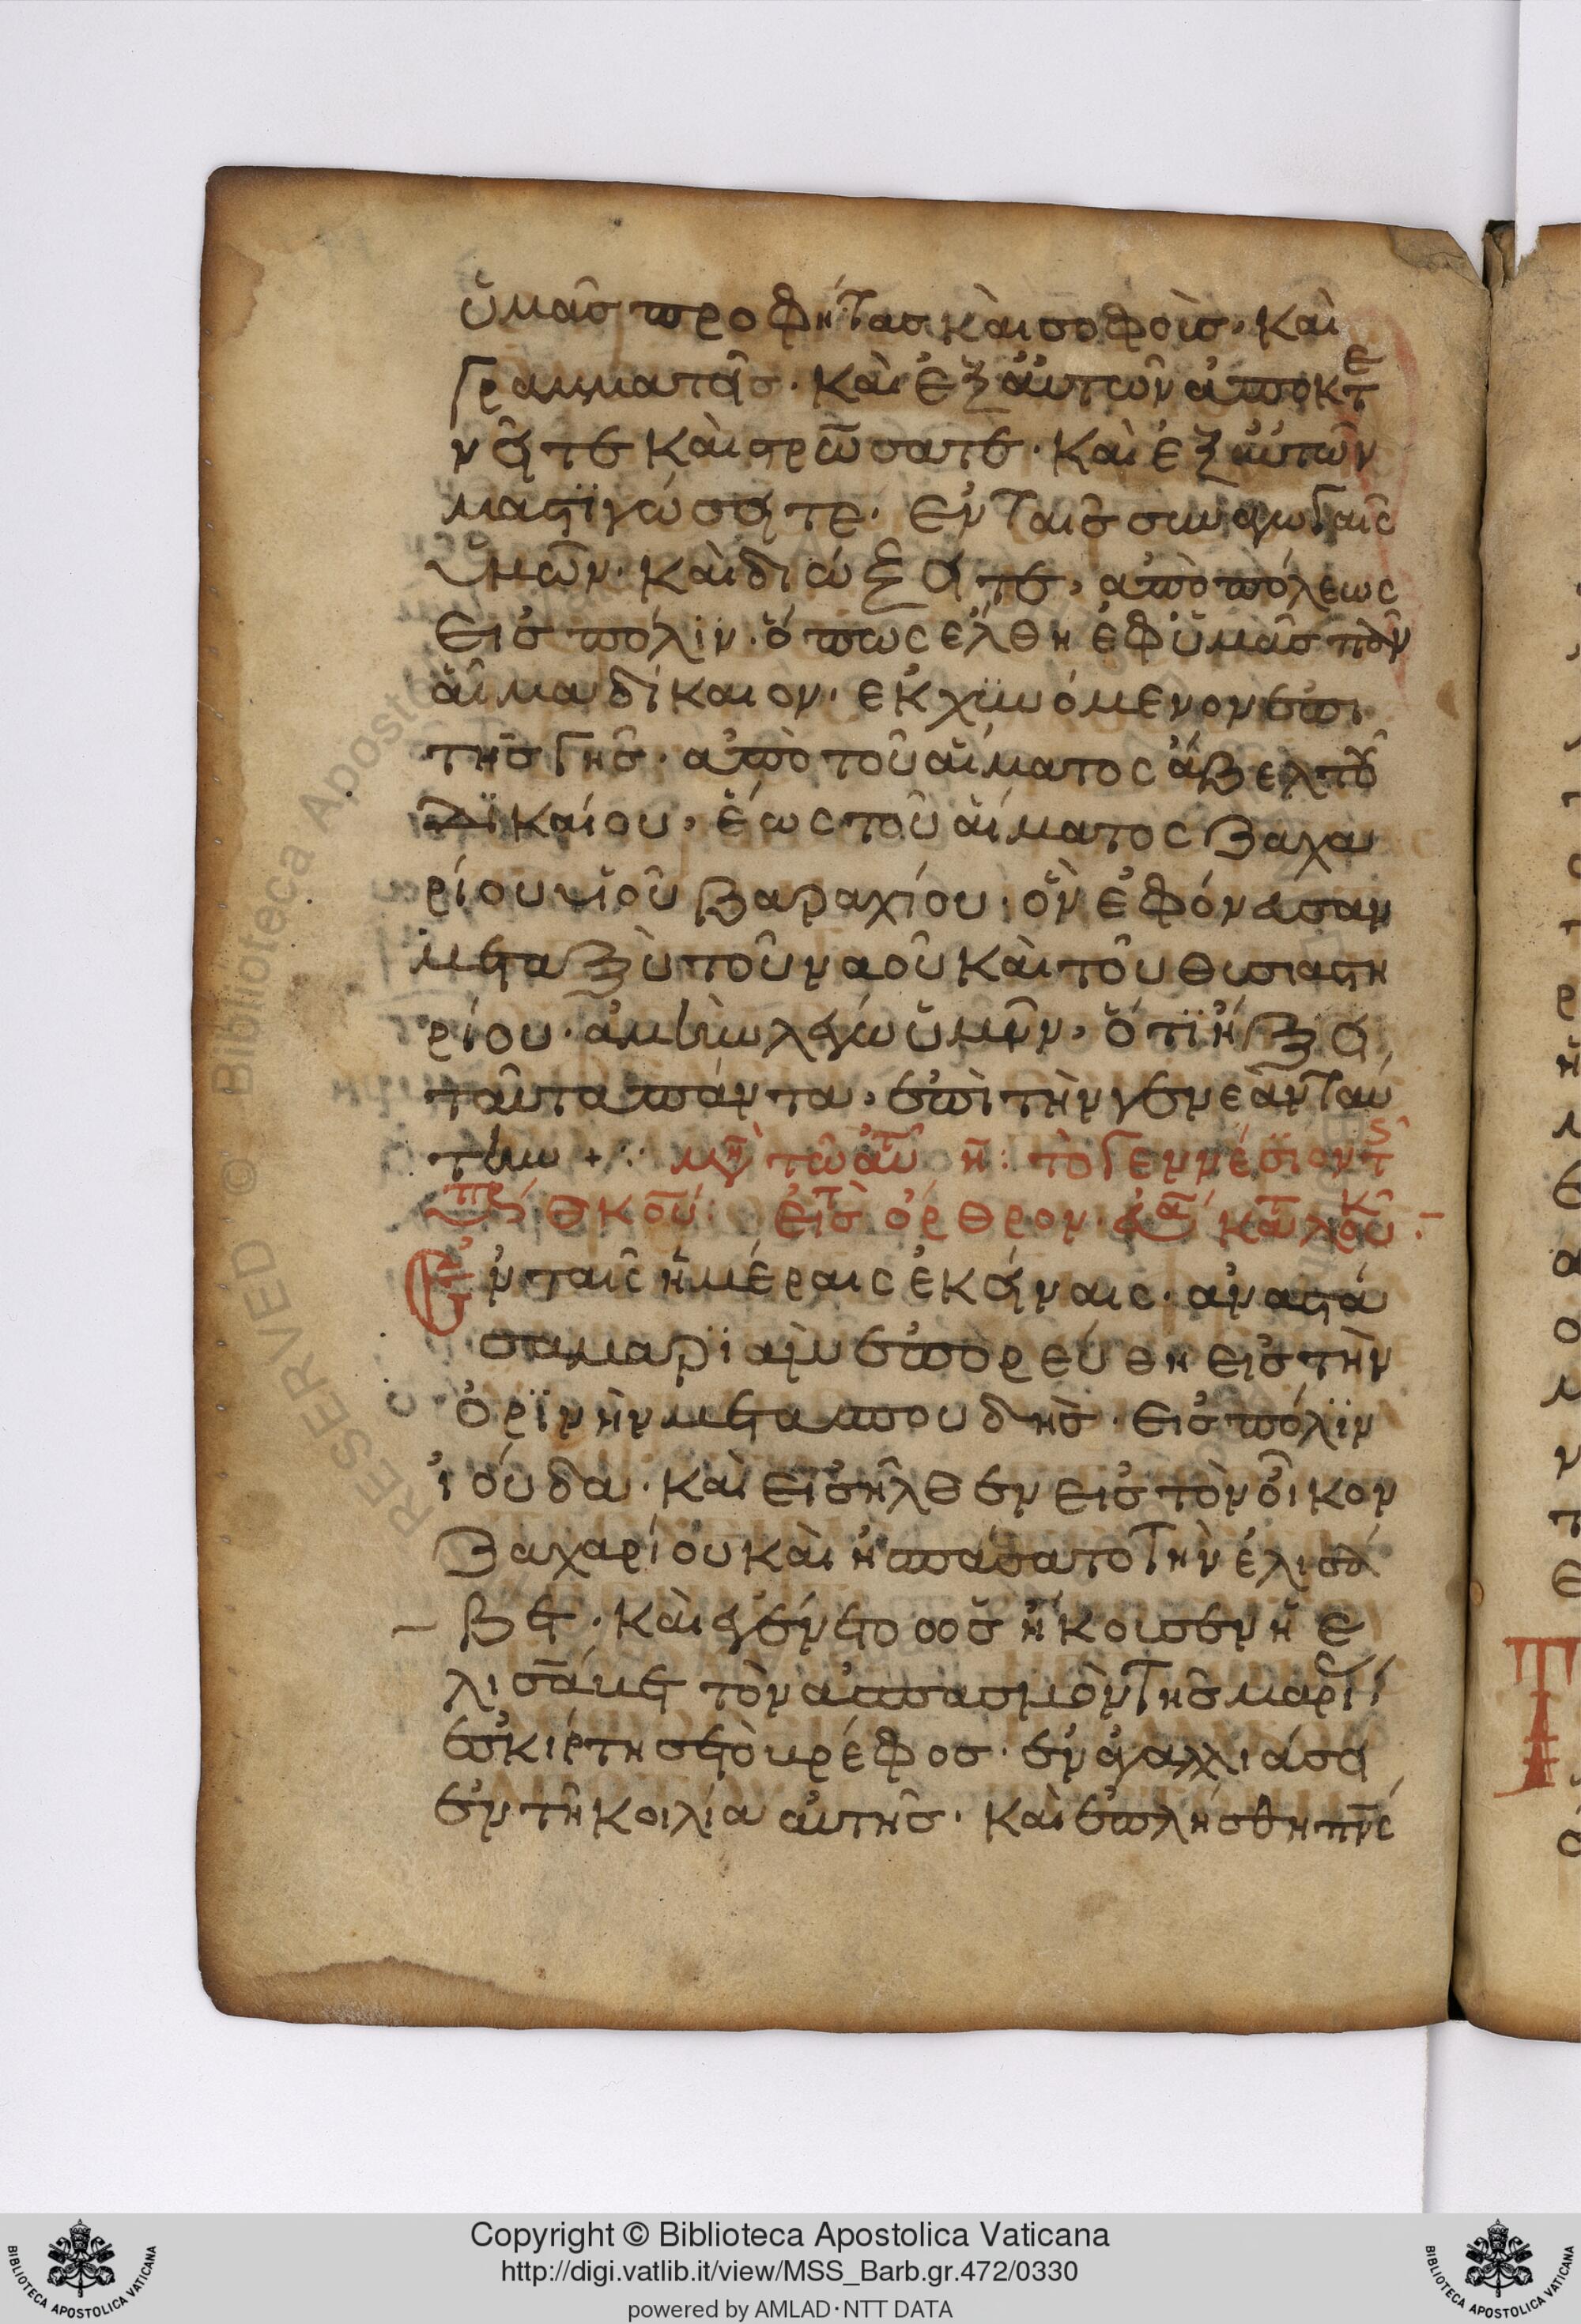 ὑμᾶς προφήτας καὶ σοφοὶς· καὶ
γραμματεῖς· καὶ ἐξ αὐτῶν ἀποκτε
νεῖτε καὶ τρώσατε· καὶ ἐξ αὐτῶν
μαστιγώσειτε· ἐν ταῖς συναγωγαῖς
ὑμῶν· καὶ διώξειτε· ἀπὸ πόλεως
εἰς πόλιν· ὅπως ἔλθη ἐφ ὑμᾶς πὸν
αἷμα δίκαιον· ἐκχϋνόμενον ἐπι
τῆς γῆς· ἀπὸ τοῦ αἵματος ἄβελ τοῦ
δϊκαίου· ἕως τοῦ αἵματος ζαχα
ρίου υἱοῦ βαραχίου· ὃν ἐφόνευσαν
μεταξὺ τοῦ ναοῦ καὶ τοῦ θυσιαστη
ρίου· ἀμὴν λέγω ὑμῖν· ὅτϊ ἥξει
ταῦτα πάντα· ἐπὶ τὴν γενεὰν ταύ
την +
ἐν ταῖς ἡμέραις ἐκείναις· ἀναστᾶ
σα μαρϊὰμ ἐπορεύθη εἰς τὴν
ὀρϊνὴν μετα σπουδῆς· εἰς πόλϊν
ἰούδα· καὶ εἰσῆλθεν εἰς τὸν οἶκον
ζαχαρίου καὶ ἠσπάσατο τὴν ἐλισά
βετ· καὶ ἐγένετο ὡς ἤκουσεν ἡ ἐ
λισάβετ τὸν ἀσπασμὸν τῆς μαρί
ἐσκίρτησε τὸ βρέφος· ἐν ἀγαλλιάσει
ἐν τῆ κοιλία αὐτῆς· καὶ ἐπλήσθη πνς
RESERVED © Biblioteca Apostolica
Copyright © Biblioteca Apostolica Vaticana
http://digi.vatlib.it/view/MSS_Barb.gr.472/0330
powered by AMLAD·NTT DATA
BIBLIOTECA APOSTOLICA VATICANA
BIBLIOTECA APOSTOLICA VATICANA